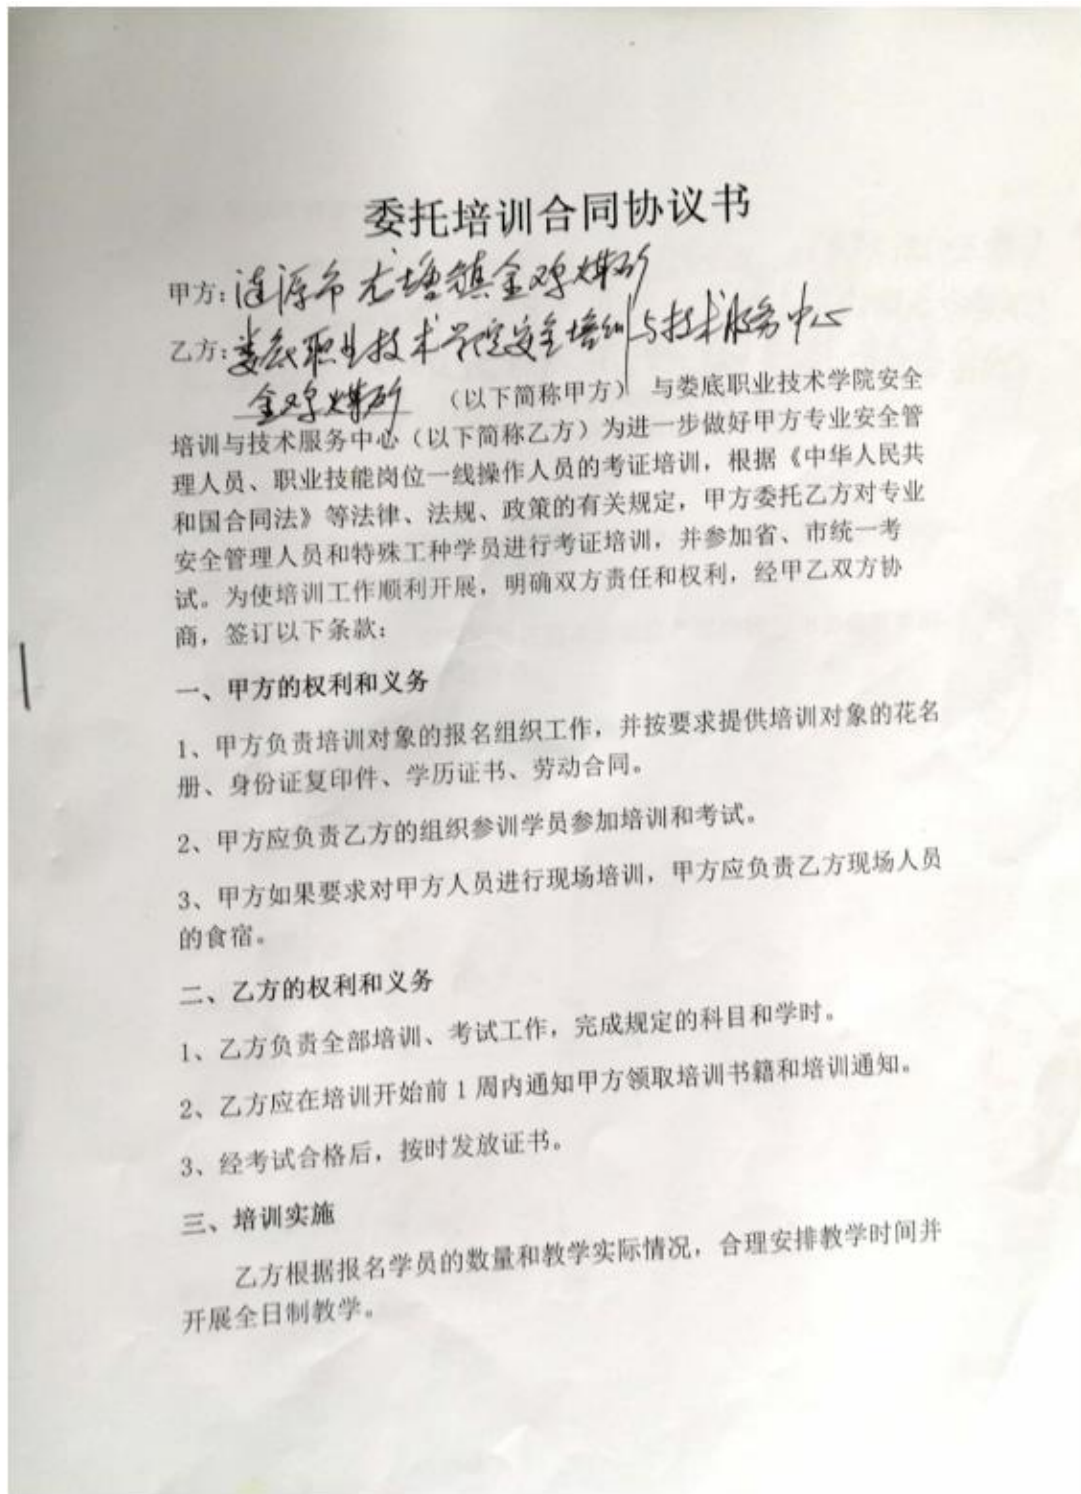 委托培训合同协议书
甲方：涟源市龙塘镇金鸡煤矿
乙方：娄底职业技术学院安全培训与技术服务中心
金鸡煤矿 （以下简称甲方） 与娄底职业技术学院安全
培训与技术服务中心（以下简称乙方）为进一步做好甲方专业安全管
理人员、职业技能岗位一线操作人员的考证培训，根据《中华人民共
和国合同法》等法律、法规、政策的有关规定，甲方委托乙方对专业
安全管理人员和特殊工种学员进行考证培训，并参加省、市统一考
试。为使培训工作顺利开展，明确双方责任和权利，经甲乙双方协
商，签订以下条款：
一、甲方的权利和义务
1、甲方负责培训对象的报名组织工作，并按要求提供培训对象的花名
册、身份证复印件、学历证书、劳动合同。
2、甲方应负责乙方的组织参训学员参加培训和考试。
3、甲方如果要求对甲方人员进行现场培训，甲方应负责乙方现场人员
的食宿。
二、乙方的权利和义务
1、乙方负责全部培训、考试工作，完成规定的科目和学时。
2、乙方应在培训开始前 1 周内通知甲方领取培训书籍和培训通知。
3、经考试合格后，按时发放证书。
三、培训实施
乙方根据报名学员的数量和教学实际情况，合理安排教学时间并
开展全日制教学。